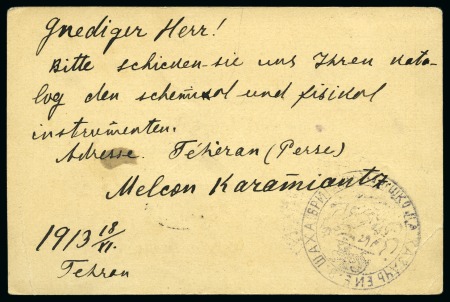 Gnediger Herr!
Bitte schicken-sie uns Ihren kata-
log den schemikal und fisikal
instrumenten.
Adresse. Téhéran (Perse)
Melcon Karamiantz
1913 18/VI.
Tehran